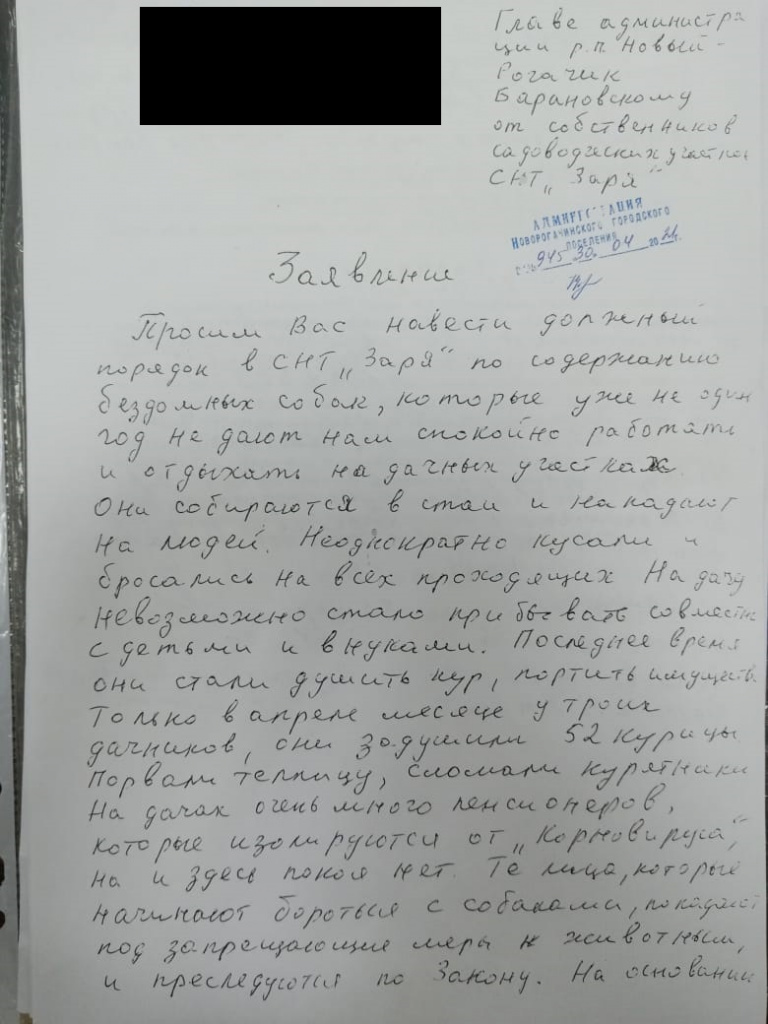 Главе администра
ции р.п. Новый-
Рогачик
Барановскому
от собственников
садоводческих участков
СНТ „Заря"
АДМИНИСТРАЦИЯ
НОВОРОГАЧИНСКОГО ГОРОДСКОГО
ПОСЕЛЕНИЯ
945 30. 04 2021г.
Заявление
Просим Вас навести должный
порядок в СНТ „Заря" по содержанию
бездомных собак, которые уже не один
год не дают нам спокойно работать
и отдыхать на дачных участках.
Они собираются в стаи и нападают
на людей. Неоднократно кусали и
бросались на всех проходящих На дачу
невозможно стало прибывать совместн
с детьми и внуками. Последнее время
они стали душить кур, портить имуществ
Только в апреле месяце у троих
дачников, они задушили 52 курицы
Порвали теплицу, сломали курятники
На дачах очень много пенсионеров,
которые изолируются от „Корновируса",
на и здесь покоя нет. Те лица, которые
начинают бороться с собаками, попадают
под запрещающие меры к животным,
и преследуются по Закону. На основании